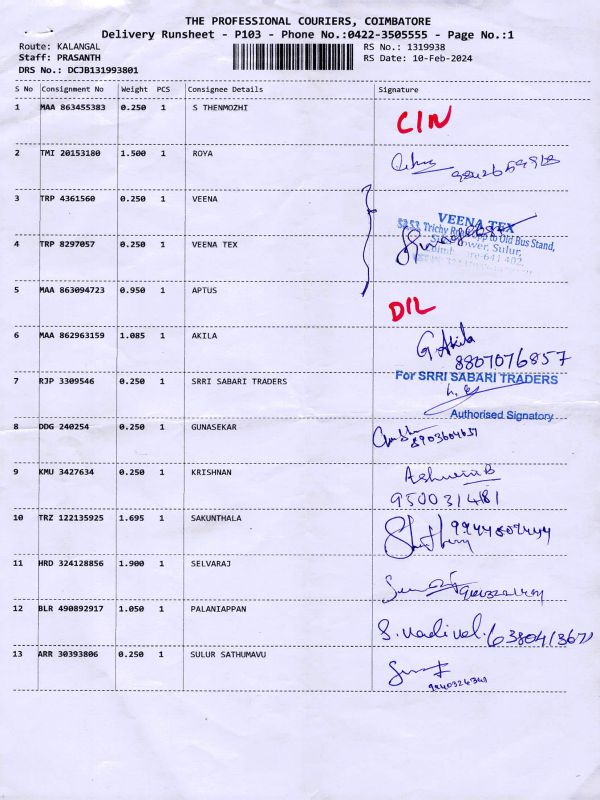 THE PROFESSIONAL COURIERS, COIMBATORE
Delivery Runsheet - P103 - Phone No.:0422-3505555 - Page No.:1
Route: KALANGAL RS No.: 1319938
Staff: PRASANTH RS Date: 10-Feb-2024
DRS No.: DCJB131993801
S No Consignment No Weight PCS Consignee Details Signature
1 MAA 863455383 0.250 1 S THENMOZHI CIN
2 TMI 20153180 1.500 1 ROYA
3 TRP 4361560 0.250 1 VEENA
VEENA TEX
to Old Bus Stand,
Sulur,
4 TRP 8297057 0.250 1 VEENA TEX
5 MAA 863094723 0.950 1 APTUS DIL
6 MAA 862963159 1.085 1 AKILA G. Akila
8807076857
7 RJP 3309546 0.250 1 SRRI SABARI TRADERS For SRRI SABARI TRADERS
Authorised Signatory
8 DDG 240254 0.250 1 GUNASEKAR
9 KMU 3427634 0.250 1 KRISHNAN
9500314181
10 TRZ 122135925 1.695 1 SAKUNTHALA
11 HRD 324128856 1.900 1 SELVARAJ
12 BLR 490892917 1.050 1 PALANIAPPAN S. Vadivel.
13 ARR 30393806 0.250 1 SULUR SATHUMAVU